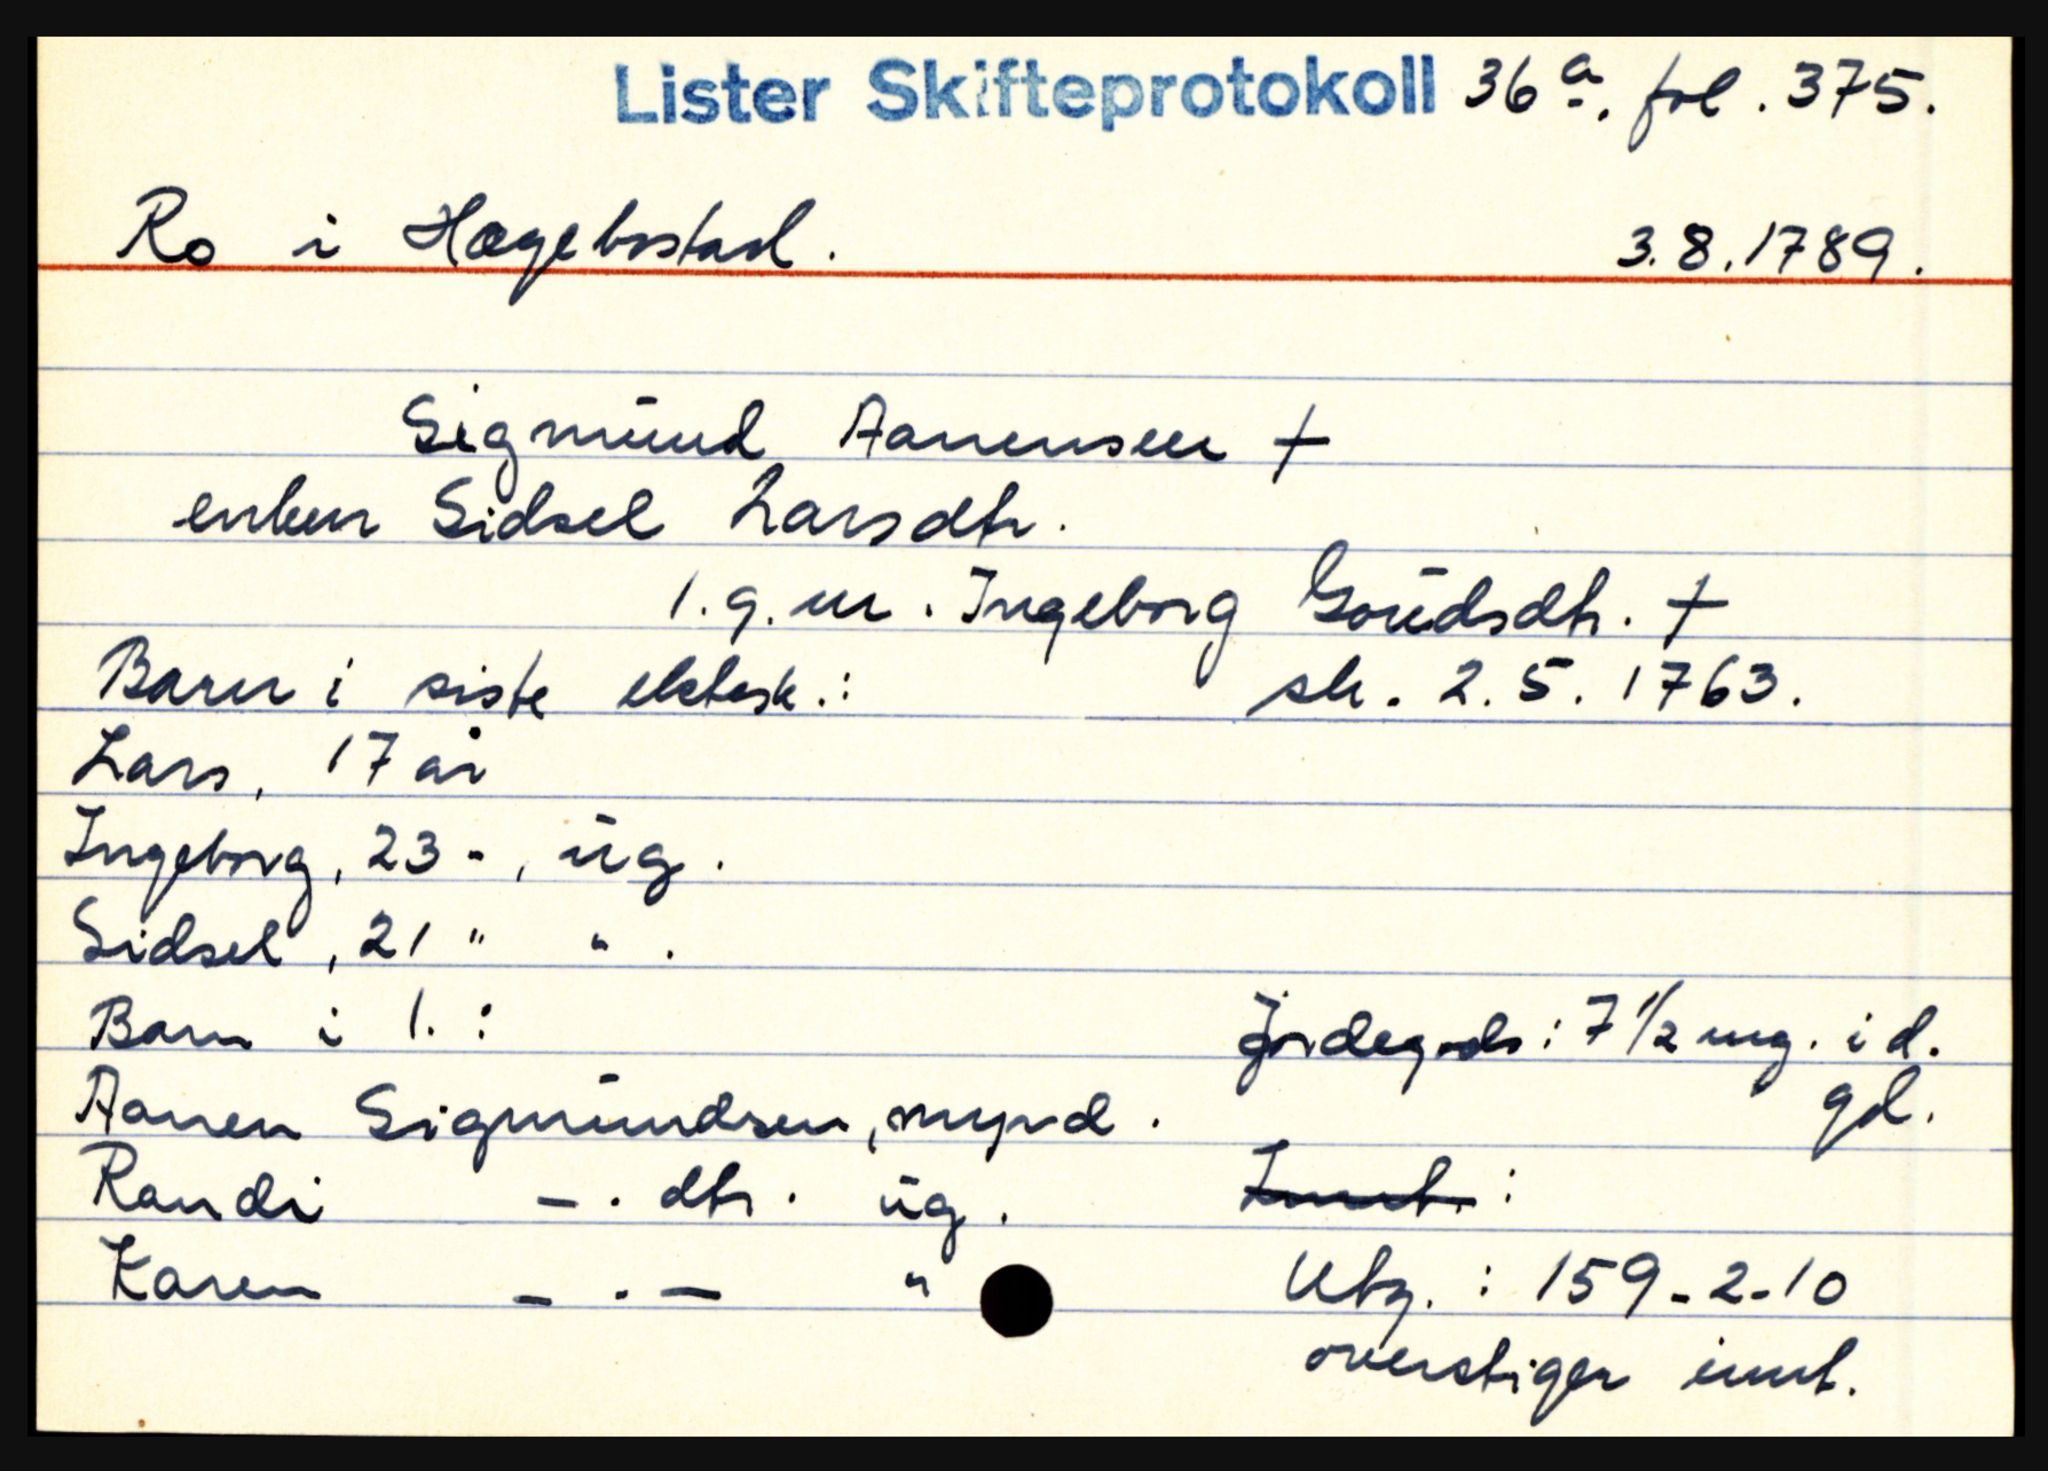 Lister Skifteprotokoll 36a. fol. 375.
Ro i Hægebostad. 3.8.1789.
Sigmund Aanensen +
enken Sidsel Larsdtr.
1. g. m. Ingeborg Goudsdtr. +
Barn i siste ektesk.: sk. 2.5.1763.
Lars, 17 år
Ingeborg, 23 -, ug.
Sidsel, 21 " " .
Barn i 1. :
Jordegods: 7 1/2 mg. i d.
gd.
Aanen Sigmundsen, mynd.
Randi - . dtr. ug. Innt. :
Karen - . - "
Utg. : 159-2-10
overstiger innt.